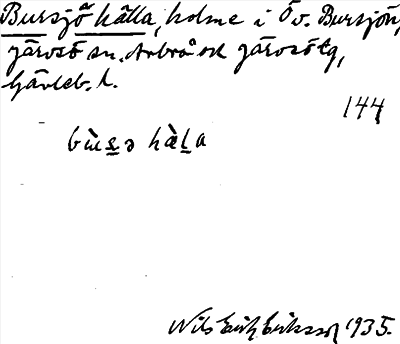 Bursjöhälla, holme i Öv. Bursjön,
Järvsö sn. Arbrå och Järvsö tg,
Gävleb. l.
144
Nils Erik Eriksson 1935.